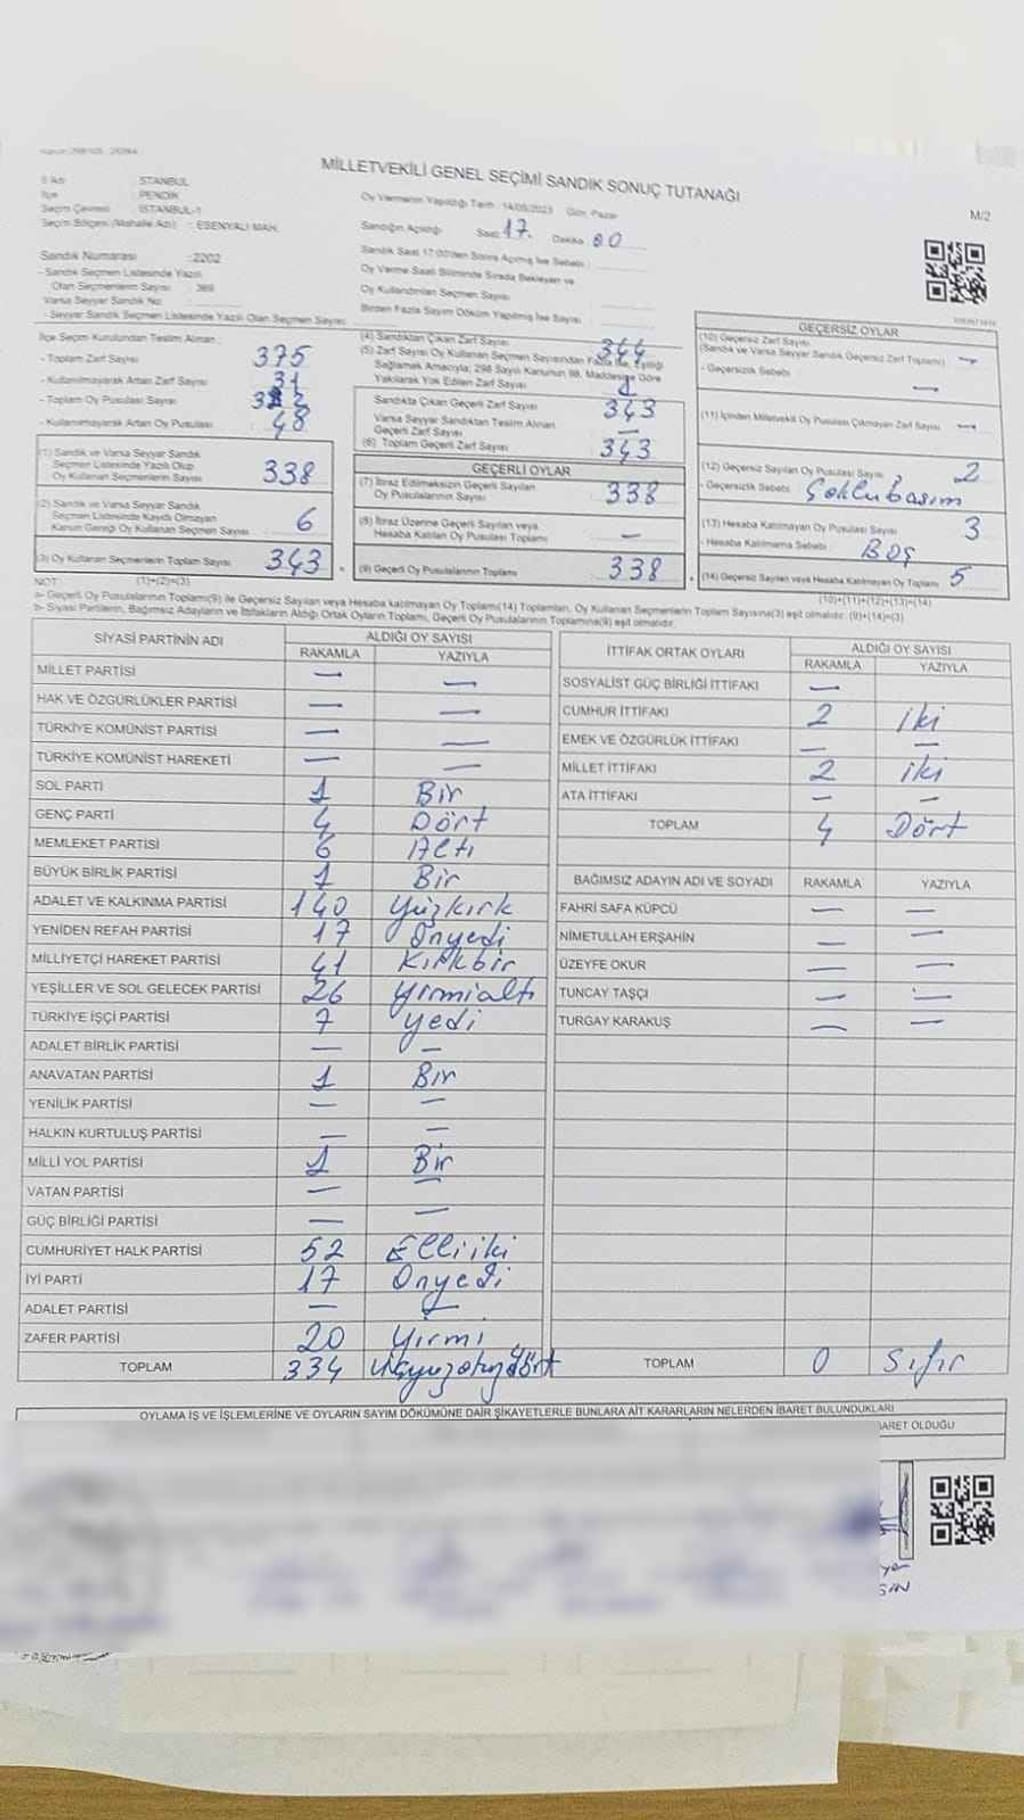 MİLLETVEKİLİ GENEL SEÇİMİ SANDIK SONUÇ TUTANAĞI
M/2
İl Adı : STANBUL
İlçe : PENDİK
Seçim Çevresi : İSTANBUL-1
Seçim Bölgesi (Mahalle Adı) : ESENYALI MAH.
Oy Vermenin Yapıldığı Tarih : 14/05/2023 Gün: Pazar
Sandığın Açıldığı Saat: 17. Dakika 00
Sandık Saat 17:00'den Sonra Açılmış İse Sebebi :
Oy Verme Saati Bitiminde Sırada Bekleyen ve
Oy Kullandırılan Seçmen Sayısı
Birden Fazla Sayım Döküm Yapılmış İse Sayısı
Sandık Numarası : 2202
- Sandık Seçmen Listesinde Yazılı
Olan Seçmenlerin Sayısı : 369
Varsa Seyyar Sandık No
- Seyyar Sandık Seçmen Listesinde Yazılı Olan Seçmen Sayısı
İlçe Seçim Kurulundan Teslim Alınan :
- Toplam Zarf Sayısı 375
- Kullanılmayarak Artan Zarf Sayısı 31
- Toplam Oy Pusulası Sayısı
- Kullanılmayarak Artan Oy Pusulası 48
(1) Sandık ve Varsa Seyyar Sandık
Seçmen Listesinde Yazılı Olup
Oy Kullanan Seçmenlerin Sayısı 338
(2) Sandık ve Varsa Seyyar Sandık
Seçmen Listesinde Kayıtlı Olmayan
Kanun Gereği Oy Kullanan Seçmen Sayısı 6
(3) Oy Kullanan Seçmenlerin Toplam Sayısı 343
(1)+(2)=(3)
(4) Sandıktan Çıkan Zarf Sayısı 344
(5) Zarf Sayısı Oy Kullanan Seçmen Sayısından Fazla İse, Eşitliği
Sağlamak Amacıyla; 298 Sayılı Kanunun 98. Maddesine Göre
Yakılarak Yok Edilen Zarf Sayısı 1
Sandıkta Çıkan Geçerli Zarf Sayısı 343
Varsa Seyyar Sandıktan Teslim Alınan
Geçerli Zarf Sayısı —
(6) Toplam Geçerli Zarf Sayısı 343
GEÇERLİ OYLAR
(7) İtiraz Edilmeksizin Geçerli Sayılan
Oy Pusulalarının Sayısı 338
(8) İtiraz Üzerine Geçerli Sayılan veya
Hesaba Katılan Oy Pusulası Toplamı —
(9) Geçerli Oy Pusulalarının Toplamı 338
GEÇERSİZ OYLAR
(10) Geçersiz Zarf Sayısı
(Sandık ve Varsa Seyyar Sandık Geçersiz Zarf Toplamı) —
- Geçersizlik Sebebi —
(11) İçinden Milletvekili Oy Pusulası Çıkmayan Zarf Sayısı —
(12) Geçersiz Sayılan Oy Pusulası Sayısı 2
- Geçersizlik Sebebi Çoklubasım
(13) Hesaba Katılmayan Oy Pusulası Sayısı 3
- Hesaba Katılmama Sebebi : Boş
(14) Geçersiz Sayılan veya Hesaba Katılmayan Oy Toplamı 5
(10)+(11)+(12)+(13)=(14)
NOT:
a- Geçerli Oy Pusulalarının Toplamı(9) ile Geçersiz Sayılan veya Hesaba katılmayan Oy Toplamı(14) Toplamları, Oy Kullanan Seçmenlerin Toplam Sayısına(3) eşit olmalıdır. (9)+(14)=(3)
b- Siyasi Partilerin, Bağımsız Adayların ve İttifakların Aldığı Ortak Oyların Toplamı, Geçerli Oy Pusulalarının Toplamına(9) eşit olmalıdır.
SİYASİ PARTİNİN ADI ALDIĞI OY SAYISI
RAKAMLA YAZIYLA
MİLLET PARTİSİ — —
HAK VE ÖZGÜRLÜKLER PARTİSİ — —
TÜRKİYE KOMÜNİST PARTİSİ — —
TÜRKİYE KOMÜNİST HAREKETİ — —
SOL PARTİ 1 Bir
GENÇ PARTİ 4 Dört
MEMLEKET PARTİSİ 6 Altı
BÜYÜK BİRLİK PARTİSİ 1 Bir
ADALET VE KALKINMA PARTİSİ 140 Yüzkırk
YENİDEN REFAH PARTİSİ 17 Onyedi
MİLLİYETÇİ HAREKET PARTİSİ 41 Kırkbir
YEŞİLLER VE SOL GELECEK PARTİSİ 26 Yirmialtı
TÜRKİYE İŞÇİ PARTİSİ 7 Yedi
ADALET BİRLİK PARTİSİ — —
ANAVATAN PARTİSİ 1 Bir
YENİLİK PARTİSİ — —
HALKIN KURTULUŞ PARTİSİ — —
MİLLİ YOL PARTİSİ 1 Bir
VATAN PARTİSİ — —
GÜÇ BİRLİĞİ PARTİSİ — —
CUMHURİYET HALK PARTİSİ 52 Elliiki
İYİ PARTİ 17 Onyedi
ADALET PARTİSİ — —
ZAFER PARTİSİ 20 Yirmi
TOPLAM 334 Üçyüzotuzdört
İTTİFAK ORTAK OYLARI ALDIĞI OY SAYISI
RAKAMLA YAZIYLA
SOSYALİST GÜÇ BİRLİĞİ İTTİFAKI —
CUMHUR İTTİFAKI 2 iki
EMEK VE ÖZGÜRLÜK İTTİFAKI — —
MİLLET İTTİFAKI 2 iki
ATA İTTİFAKI — —
TOPLAM 4 Dört
BAĞIMSIZ ADAYIN ADI VE SOYADI RAKAMLA YAZIYLA
FAHRİ SAFA KÜPCÜ — —
NİMETULLAH ERŞAHİN — —
ÜZEYFE OKUR — —
TUNCAY TAŞÇI — —
TURGAY KARAKUŞ — —
TOPLAM 0 Sıfır
OYLAMA İŞ VE İŞLEMLERİNE VE OYLARIN SAYIM DÖKÜMÜNE DAİR ŞİKAYETLERLE BUNLARA AİT KARARLARIN NELERDEN İBARET BULUNDUKLARI
BARET OLDUĞU